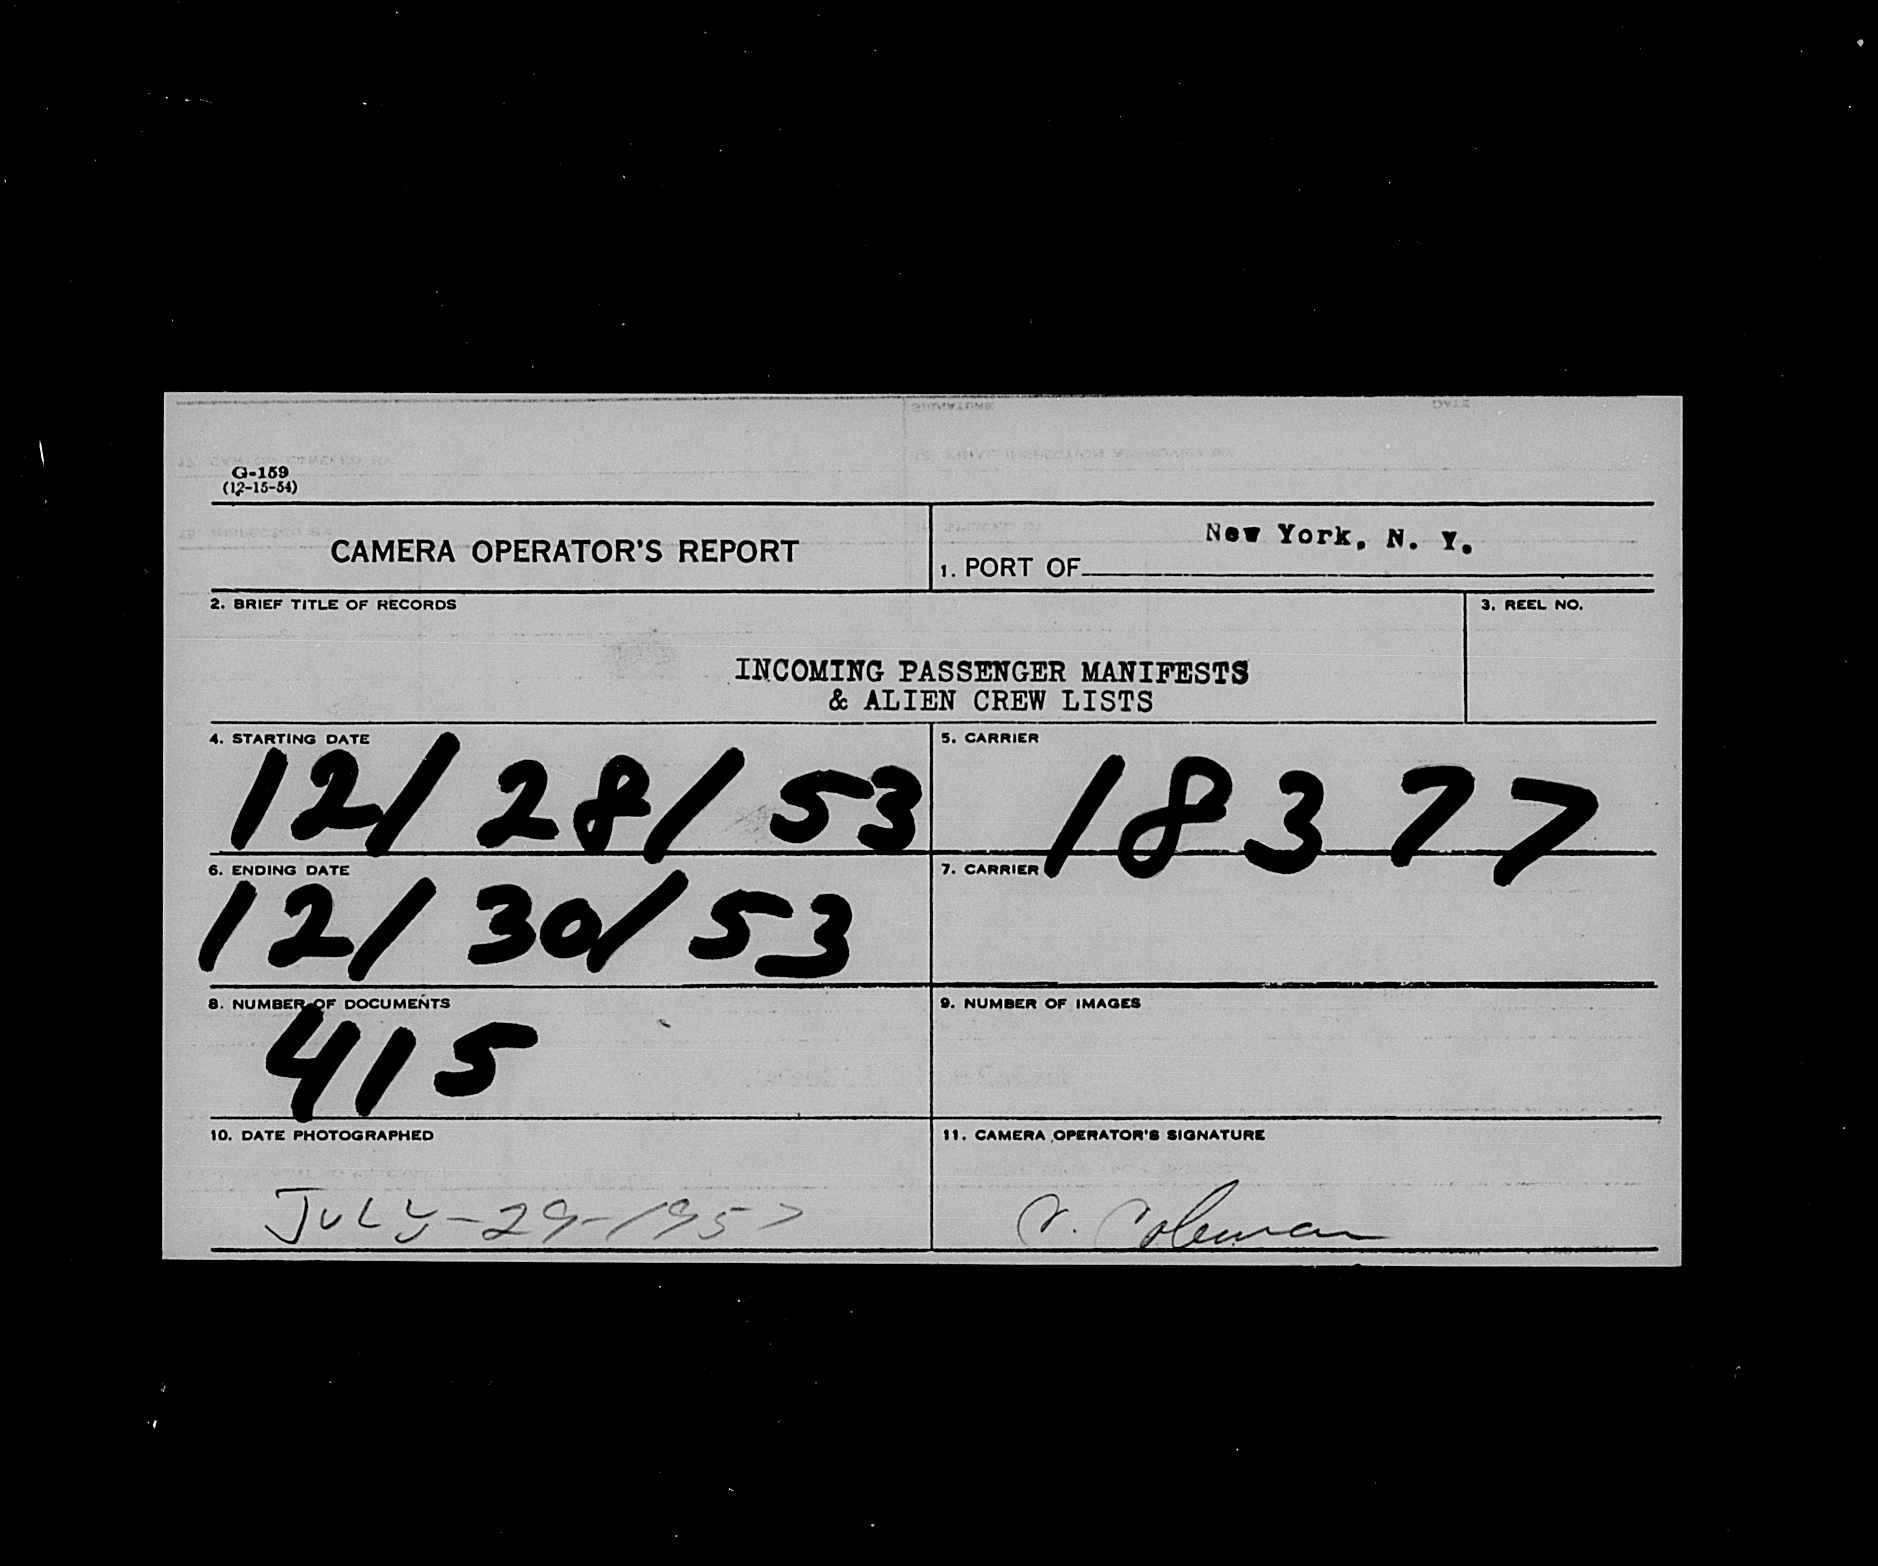 G-159
(12-15-54)
CAMERA OPERATOR'S REPORT
New York, N. Y.
1. PORT OF
2. BRIEF TITLE OF RECORDS
3. REEL NO.
INCOMING PASSENGER MANIFESTS
& ALIEN CREW LISTS
4. STARTING DATE
12/28/53
5. CARRIER
18377
6. ENDING DATE
12/30/53
7. CARRIER
8. NUMBER OF DOCUMENTS
415
9. NUMBER OF IMAGES
10. DATE PHOTOGRAPHED
JULY-29-1957
11. CAMERA OPERATOR'S SIGNATURE
Coleman